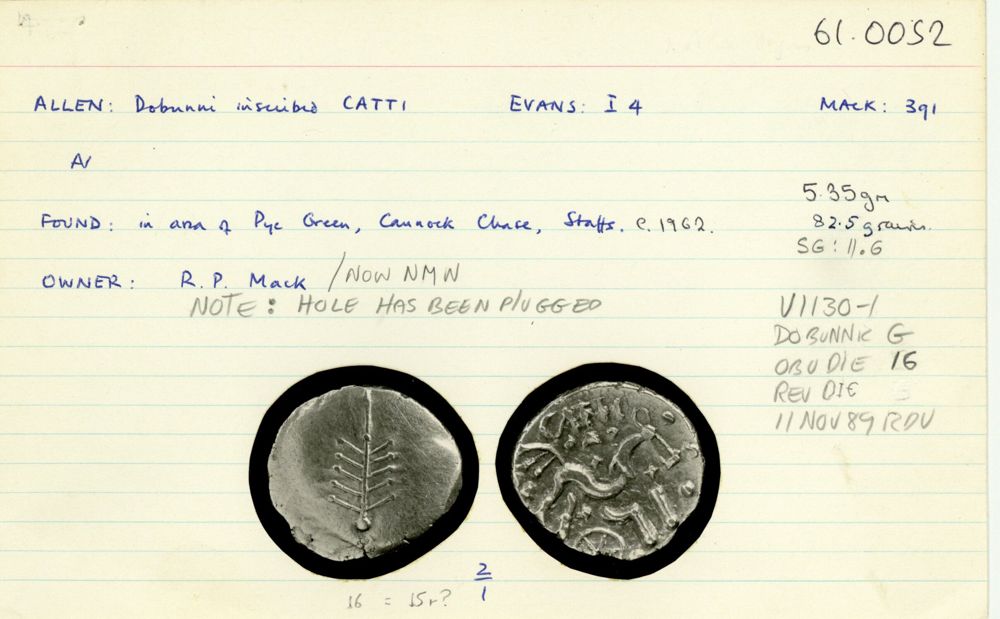 61.0052
ALLEN: Dobunni inscribed CATTI EVANS: I 4 MACK: 391
AV
FOUND: in area of Pye Green, Cannock Chase, Staffs. c.1962.
5.35gm
82.5 grains.
SG: 11.6
OWNER: R.P. Mack / NOW NMW
NOTE: HOLE HAS BEEN PLUGGED
V1130-1
DOBUNNIC G
OBV DIE 16
REV DIE
11 NOV 89 RDV
2
1
16 = 15r?